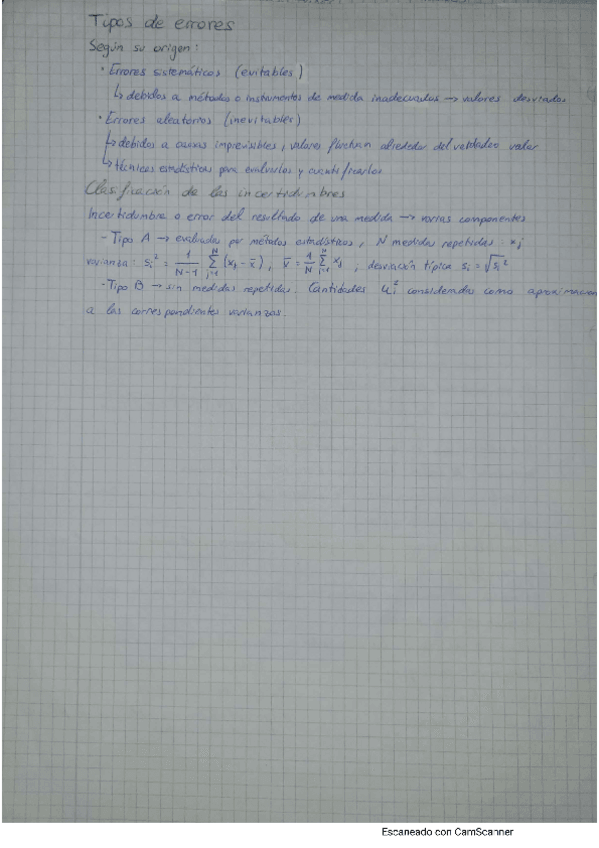 Tipos de errores
Según su origen:
· Errores sistemáticos (evitables)
↳ debidos a métodos o instrumentos de medida inadecuados → valores desviados
· Errores aleatorios (inevitables)
↳ debidos a causas imprevisibles, valores fluctúan alrededor del verdadero valor
↳ técnicas estadísticas para evaluarlos y cuantificarlos
Clasificación de las incertidumbres
Incertidumbre o error del resultado de una medida → varias componentes
- Tipo A → evaluadas por métodos estadísticos, N medidas repetidas: xj
varianza: si² = 1/(N-1) Σ_{j=1}^{N} (xj - x̄), v̄ = 1/N Σ_{j=1}^{N} xj, desviación típica si = √si²
- Tipo B → sin medidas repetidas. Cantidades ui² consideradas como aproximacion
a las correspondientes varianzas.
Escaneado con CamScanner